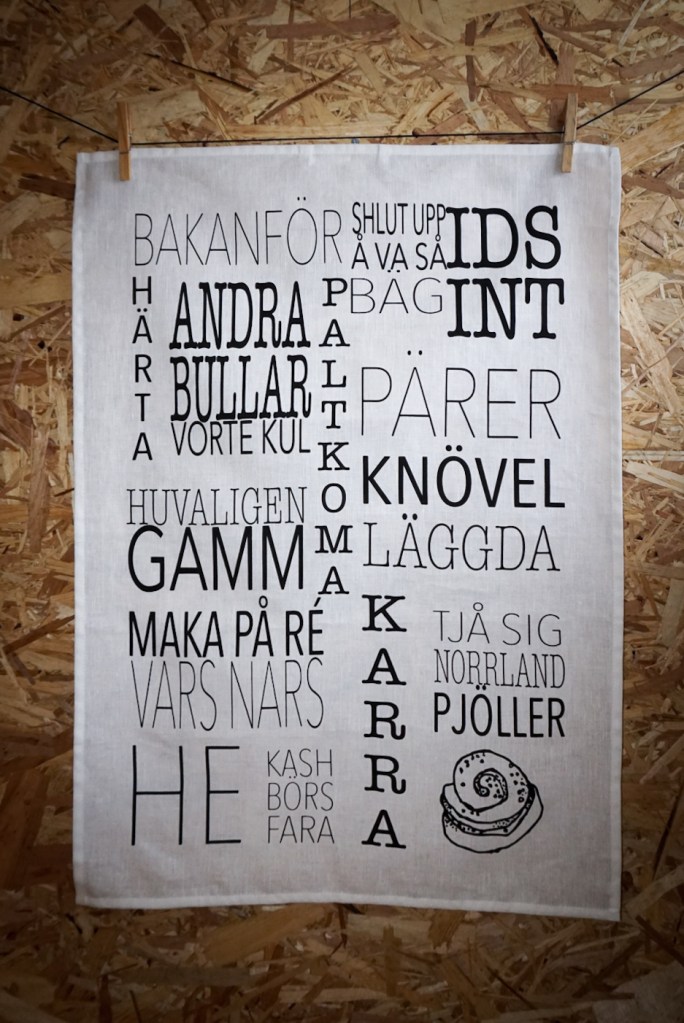 BAKANFÖR
SHLUT UPP
Å VA SÅ
BÄG
IDS
INT
HÄRTA
ANDRA
BULLAR
VORTE KUL
PALTKOMA
PÄRER
KNÖVEL
LÄGGDA
HUVALIGEN
GAMM
MAKA PÅ RÉ
VARS NARS
HE
KASH
BORS
FARA
KARRA
TJÅ SIG
NORRLAND
PJÖLLER